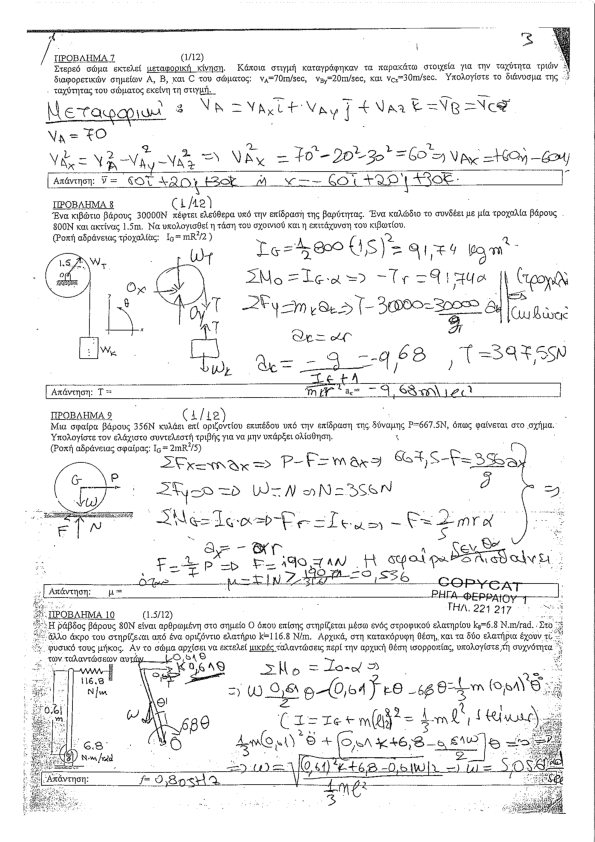 3
ΠΡΟΒΛΗΜΑ 7 (1/12)
Στερεό σώμα εκτελεί μεταφορική κίνηση. Κάποια στιγμή καταγράφηκαν τα παρακάτω στοιχεία για την ταχύτητα τριών
διαφορετικών σημείων A, B, και C του σώματος: vA=70m/sec, vBy=20m/sec, και vCz=30m/sec. Υπολογίστε το διάνυσμα της
ταχύτητας του σώματος εκείνη τη στιγμή.
Μεταφορική : V̄A = VAx ī + VAy j̄ + VAz k̄ = V̄B = V̄C
VA = 70
VAx² = VA² - VAy² - VAz² => VAx² = 70² - 20² - 30² = 60² => VAx = +60 ή -60 m/
Απάντηση: v̄ = 60ī + 20j + 30k̄ ή v = -60ī + 20j + 30k̄.
ΠΡΟΒΛΗΜΑ 8 (1/12)
Ένα κιβώτιο βάρους 30000N πέφτει ελεύθερα υπό την επίδραση της βαρύτητας. Ένα καλώδιο το συνδέει με μία τροχαλία βάρους
800N και ακτίνας 1.5m. Να υπολογισθεί η τάση του σχοινιού και η επιτάχυνση του κιβωτίου.
(Ροπή αδράνειας τροχαλίας: IO = mR²/2)
IG = 1/2 800 (1,5)² = 91,74 kg m².
1.5 WT WT
ΣMO = IG·α => -Tr = 91,74α
Ox Oy T
θ
ΣFy = mk ak => T - 30000 = 30000/g ak
ak = αr
WK Wk
ak = -g / (IG/mkr² + 1) = -9,68 , T = 397,55N
Απάντηση: T = ak = -9,68m/sec²
ΠΡΟΒΛΗΜΑ 9 (1/12)
Μια σφαίρα βάρους 356N κυλάει επί οριζοντίου επιπέδου υπό την επίδραση της δύναμης P=667.5N, όπως φαίνεται στο σχήμα.
Υπολογίστε τον ελάχιστο συντελεστή τριβής για να μην υπάρξει ολίσθηση.
(Ροπή αδράνειας σφαίρας: IG = 2mR²/5)
ΣFx = max => P - F = max => 667,5 - F = 356/g ax
G P W F N
ΣFy = 0 => W = N => N = 356N
ΣMG = IG·α => -Fr = IG·α => -F = 2/5 mrα
ax = -αr
F = 2/7 P => F = 190,71N Η σφαίρα δεν θα ολισθαίνει
όταν μ = F/N
Απάντηση: μ =
COPYCAT
ΡΗΓΑ ΦΕΡΡΑΙΟΥ 1
ΤΗΛ. 221 217
ΠΡΟΒΛΗΜΑ 10 (1.5/12)
Η ράβδος βάρους 80N είναι αρθρωμένη στο σημείο O όπου επίσης στηρίζεται μέσω ενός στροφικού ελατηρίου kθ=6.8 N.m/rad. Στο
άλλο άκρο του στηρίζεται από ένα οριζόντιο ελατήριο k=116.8 N/m. Αρχικά, στη κατακόρυφη θέση, και τα δύο ελατήρια έχουν το
φυσικό τους μήκος. Αν το σώμα αρχίσει να εκτελεί μικρές ταλαντώσεις περί την αρχική θέση ισορροπίας, υπολογίστε τη συχνότητα
των ταλαντώσεων αυτών.
0,61θ
K 0,61θ
116.8
N/m
ΣMO = IO·α =>
=> W 0,61/2 θ - (0,61)² kθ - 6,8θ = 1/3 m (0,61)² θ̈
0.61
m
W θ 6,8θ O
(I = IG + m(l/2)² = 1/3 ml², Steiner)
1/3 m(0,61)² θ̈ + [0,61 k + 6,8 - 0,61W/2] θ = 0 =>
6.8
N·m/rad
=> ω = √((0,61)²k + 6,8 - 0,61W/2) / (1/3 ml²) => ω = 5,056 rad/sec
Απάντηση: f = 0,805Hz